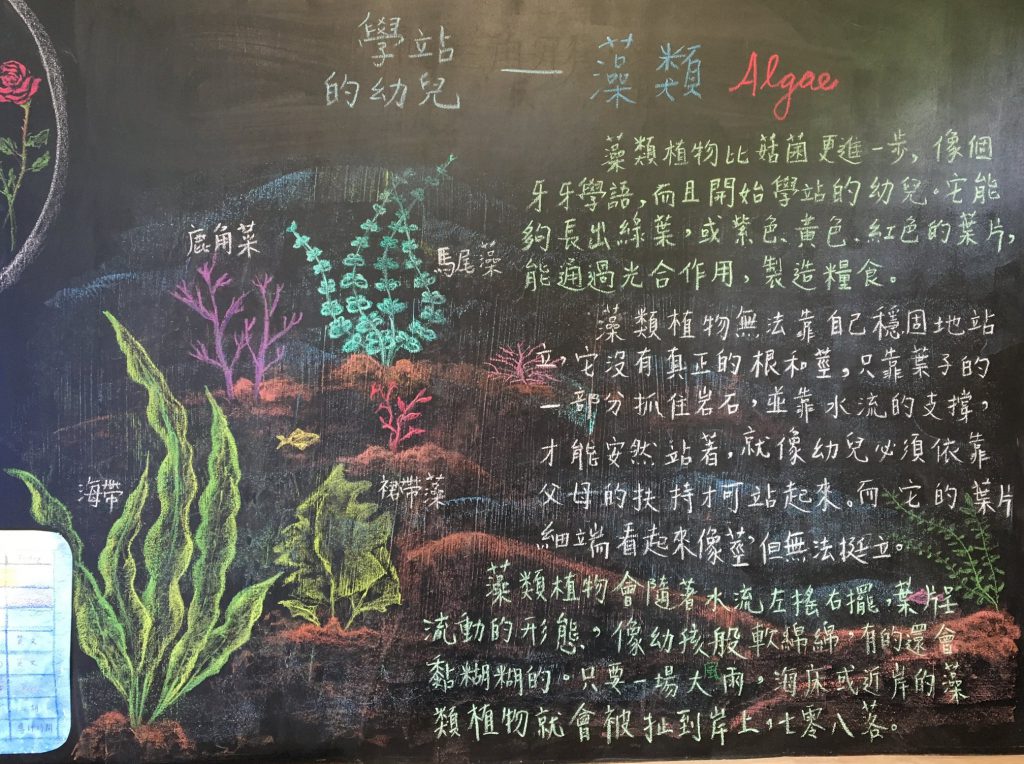 學站
的幼兒 — 藻類 Algae
藻類植物比菇菌更進一步，像個
牙牙學語，而且開始學站的幼兒。它能
夠長出綠葉，或紫色、黃色、紅色的葉片，
能通過光合作用，製造糧食。
藻類植物無法靠自己穩固地站
立，它沒有真正的根和莖，只靠葉子的
一部分抓住岩石，並靠水流的支撐，
才能安然站著，就像幼兒必須依靠
父母的扶持才可站起來。而它的葉片
細端看起來像莖，但無法挺立。
藻類植物會隨著水流左搖右擺，葉片呈
流動的形態，像幼孩般軟綿綿，有的還會
黏糊糊的。只要一場大風雨，海床或近岸的藻
類植物就會被扯到岸上，七零八落。
鹿角菜
馬尾藻
海帶
裙帶藻